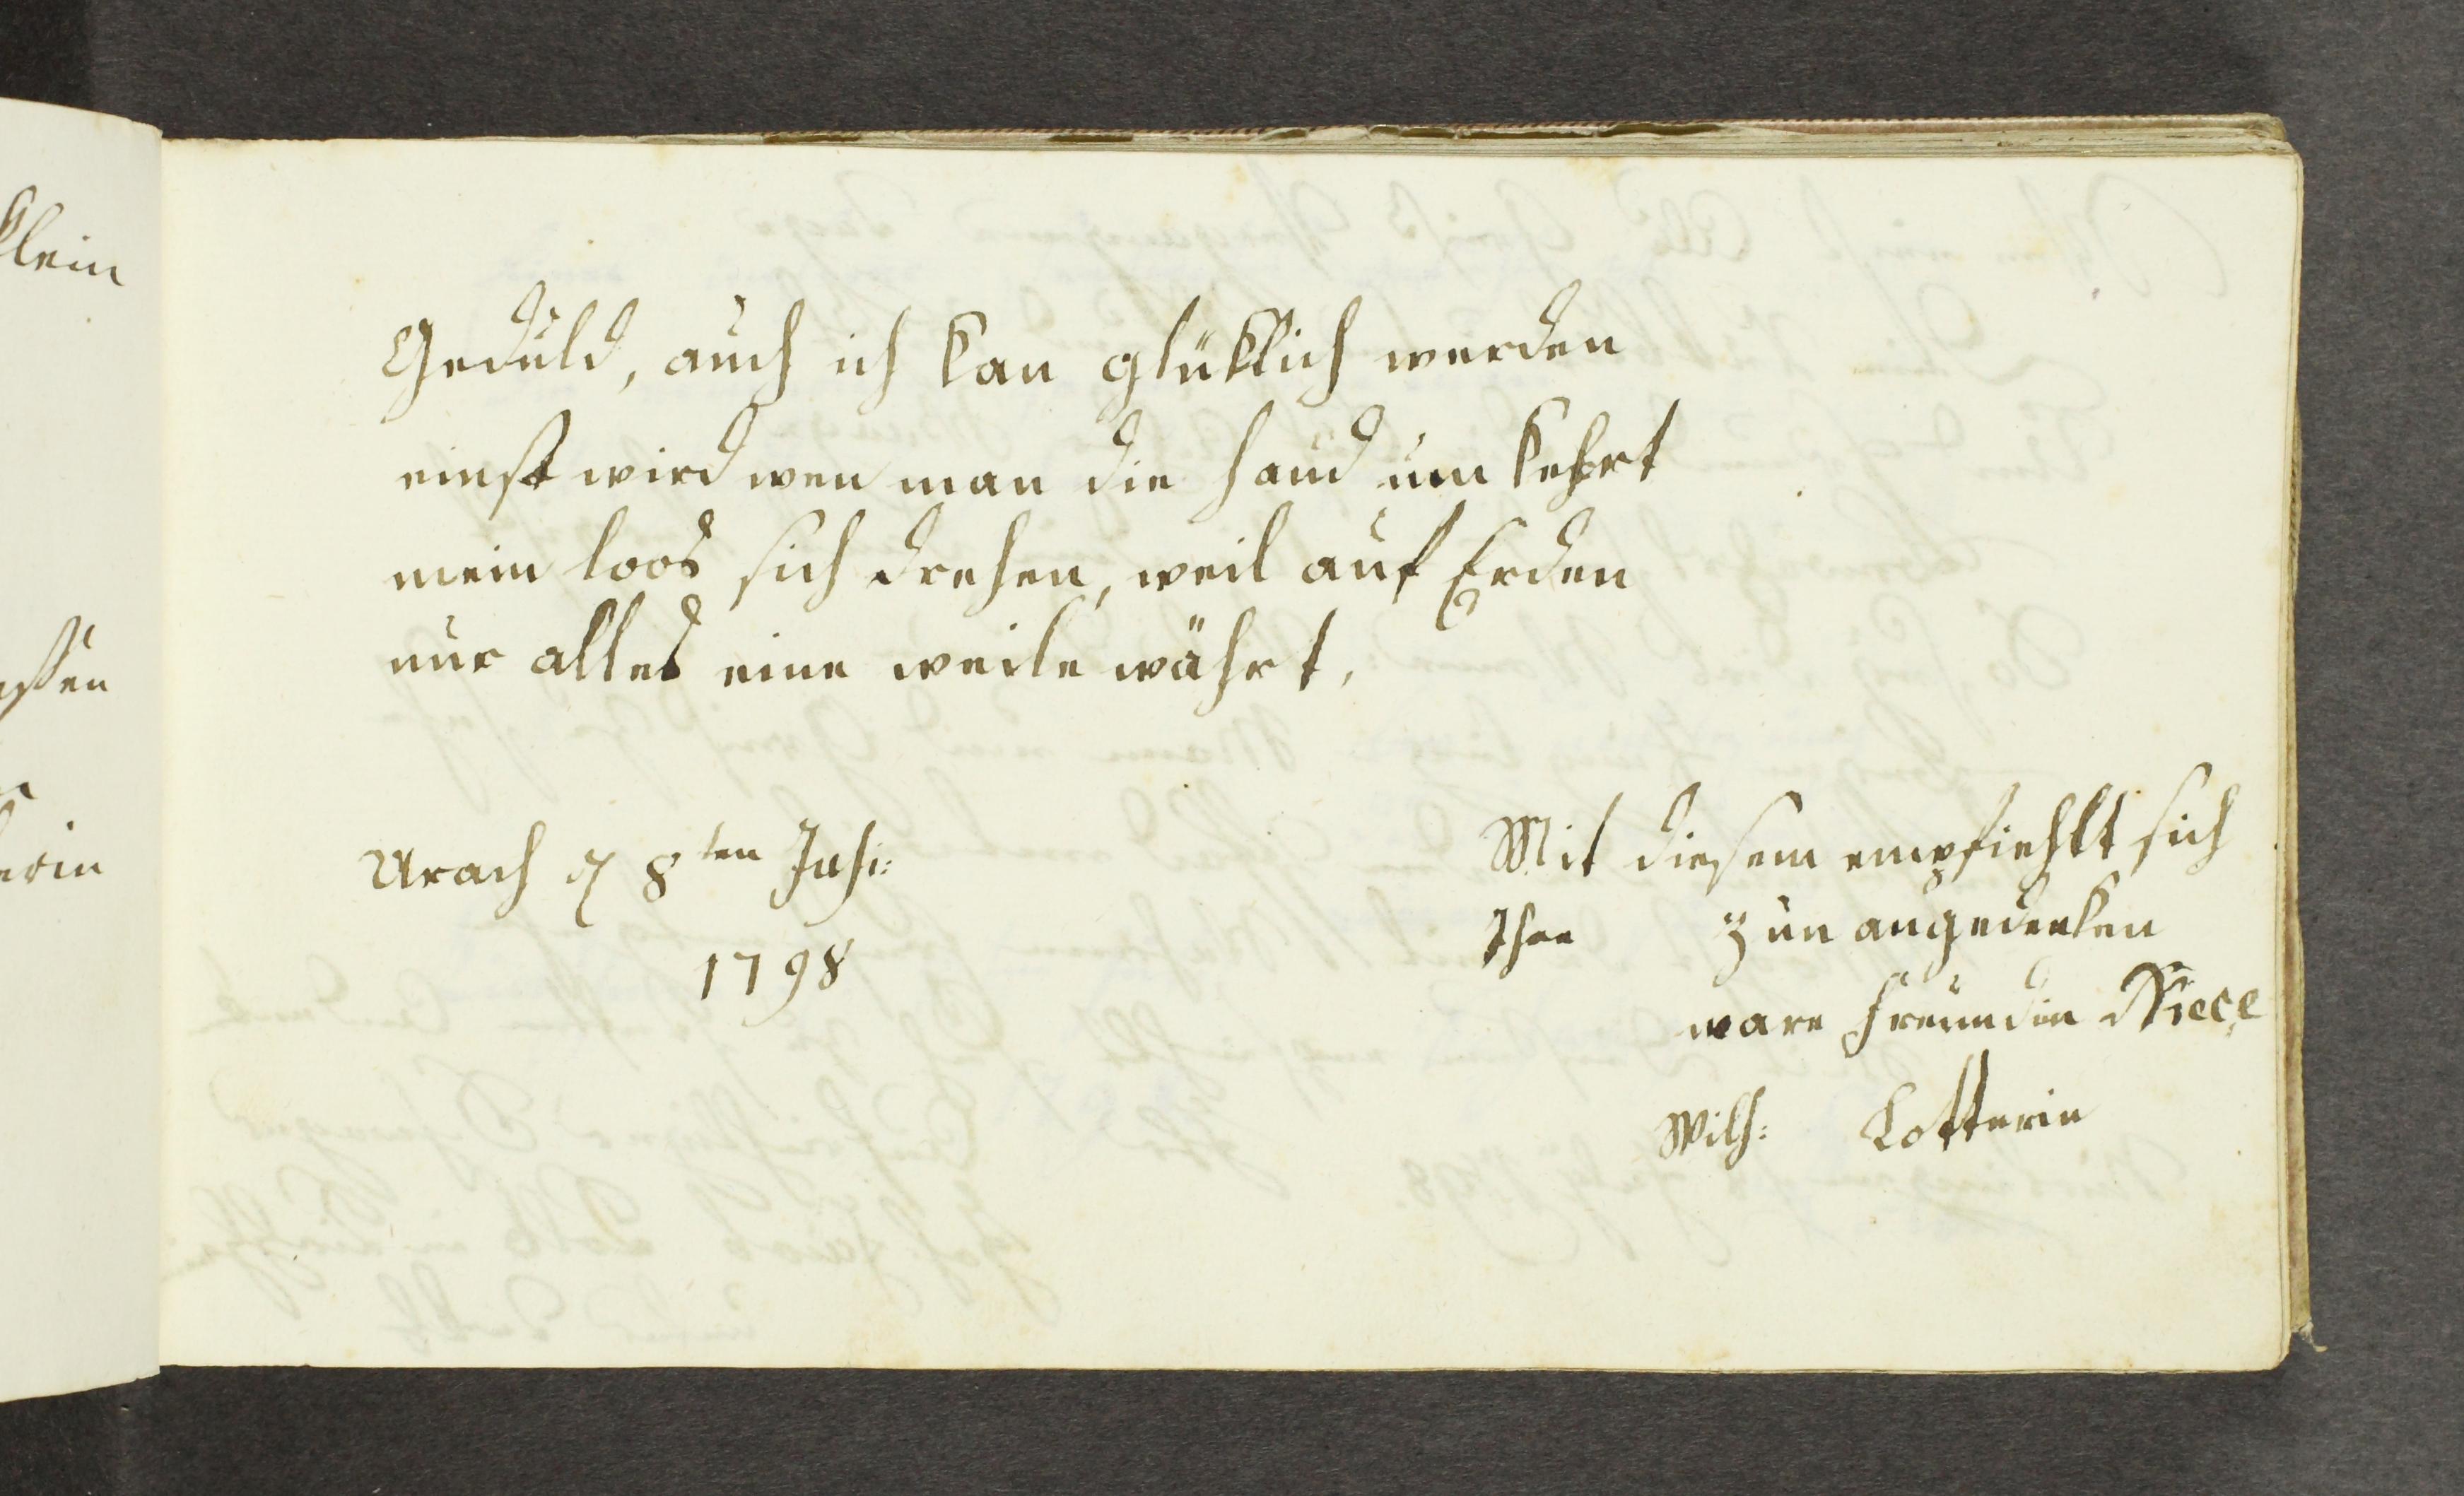 klein
ssen
erin
Geduld, auch ich kan glüklich werden
einst wird wen man die hand um kehrt
mein loos sich drehen, weil auf Erden
nur alles eine weile währt,
Urach d 8ten
1798
Mit diesem empfiehlt sich
Ihre zun angedenken
ware freundin Niece
Wilh: Lotterin